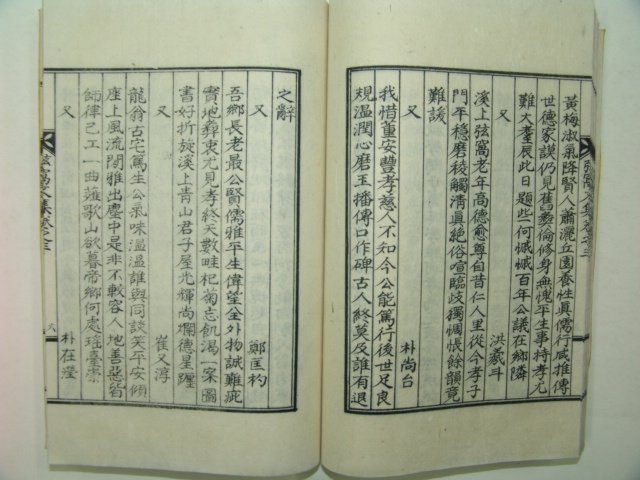 黃梅淑氣降賢人蕭灑丘園養性眞儒行咸推傳
世德家謨仍見舊彝倫修身無愧平生事持孝尤
難大耋辰此日題些一何慽慽百年公議在鄉隣
又 洪羲斗
溪上弦窩老年高德愈尊自昔仁人里從今孝子
門平穩磨稜觸淸眞絶俗喧臨歧獨惆悵餘韻竟
難諼
又 朴尚台
我惜董安豐孝慈人不知今公能篤行後世足良
規溫潤心磨玉播傳口作碑古人終莫反誰有退
之辭
又 鄭匡杓
吾鄉長老最公賢儒雅平生偉望全外物誠難疵
實地葬東尤見孝終天數畦杞菊忘飢渴一案圖
書好折旋溪上靑山君子屋光輝尚爛德星躔
又 崔又淳
龍翁古宅篤生公氣味溫溫誰與同談笑平安傾
座上風流閒雅出塵中是非不較容人地善惡皆
師律己工一曲薤歌山欲暮帝鄉何處瑤臺崇
又 朴在瀅
弦窩文集卷之三 六